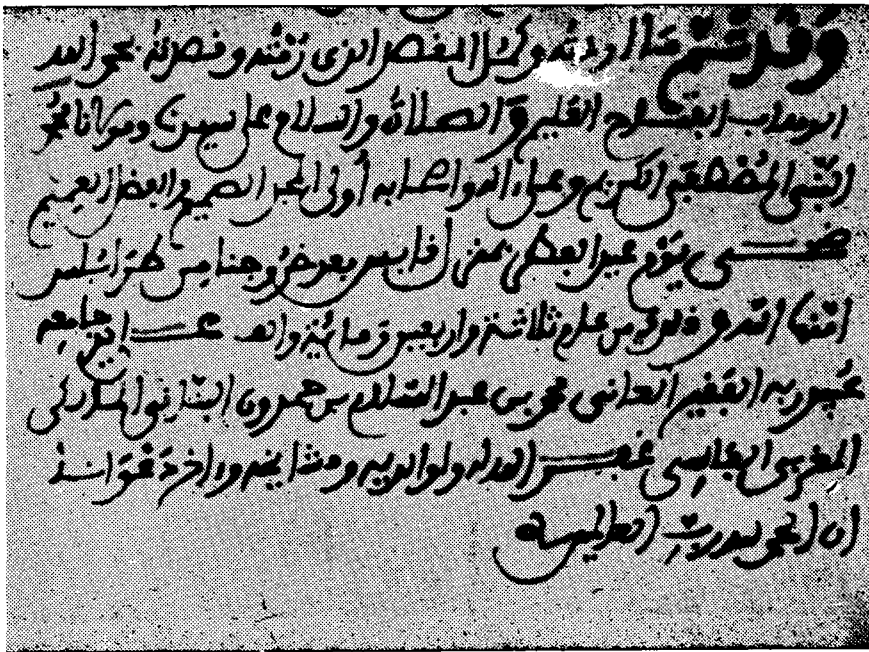 وَقَدْ تَمَّ مَا اردته وكمل المقصد الذى رُمْتُه وقصدته بحمد الله
الوهاب الفتاح العليم والصلاة والسلام على سيدنا ومولانا محمد
النبى المصطفى الكريم وعلى اله واصحابه أولى المجد الصميم والفضل العميم
ضحى يوم عيد الفطر بعد خروجنا من طرابلس
امنها الله وذلك من عام ثلاثة واربعين ومائة والف على يد جامعه
عبيد ربه الفقير الجانى محمد بن عبد السلام بن حمدون البنانى
المغربى الفاسى غفر الله له ولوالديه ومشايخه وءاخر دعوانا
ان الحمد لله رب العالمين